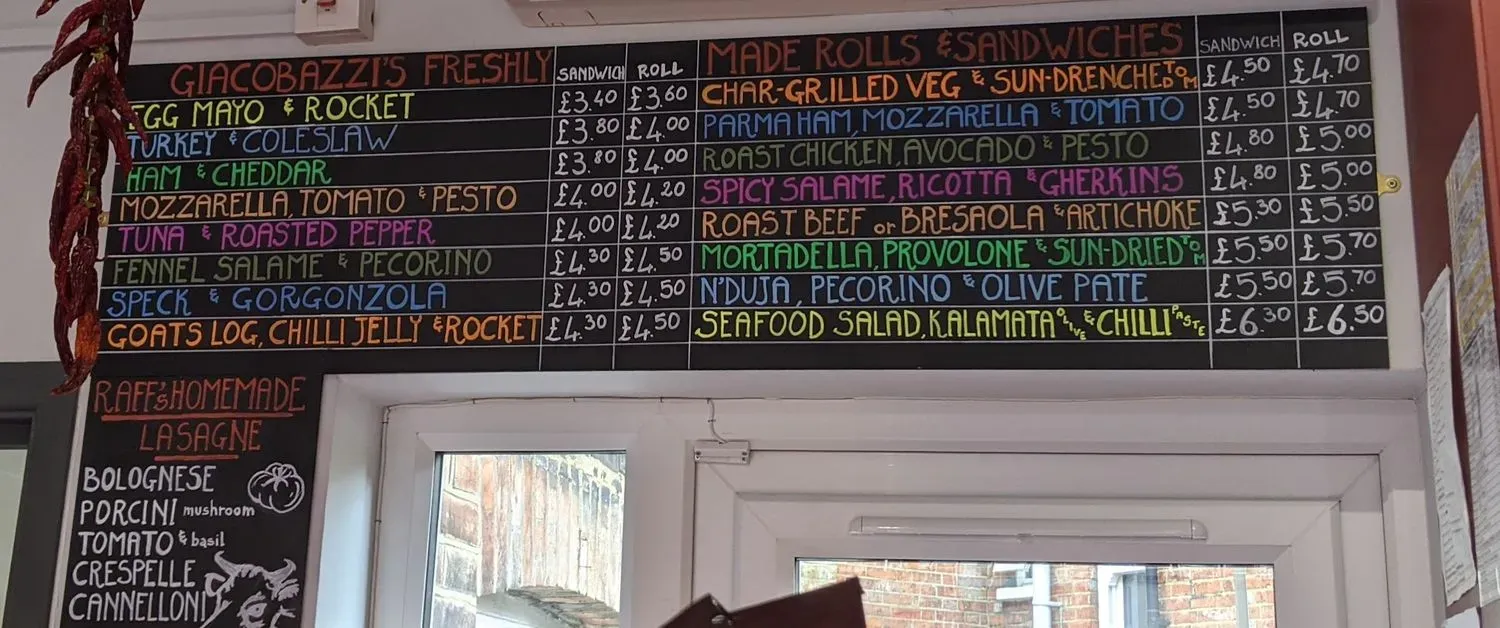 GIACOBAZZI'S FRESHLY SANDWICH ROLL
EGG MAYO & ROCKET £3.40 £3.60
TURKEY & COLESLAW £3.80 £4.00
HAM & CHEDDAR £3.80 £4.00
MOZZARELLA, TOMATO & PESTO £4.00 £4.20
TUNA & ROASTED PEPPER £4.00 £4.20
FENNEL SALAME & PECORINO £4.30 £4.50
SPECK & GORGONZOLA £4.30 £4.50
GOATS LOG, CHILLI JELLY & ROCKET £4.30 £4.50
MADE ROLLS & SANDWICHES SANDWICH ROLL
CHAR-GRILLED VEG & SUN-DRENCHED TOM £4.50 £4.70
PARMA HAM, MOZZARELLA & TOMATO £4.50 £4.70
ROAST CHICKEN, AVOCADO & PESTO £4.80 £5.00
SPICY SALAME, RICOTTA & GHERKINS £4.80 £5.00
ROAST BEEF or BRESAOLA & ARTICHOKE £5.30 £5.50
MORTADELLA, PROVOLONE & SUN-DRIED TOM £5.50 £5.70
N'DUJA, PECORINO & OLIVE PATE £5.50 £5.70
SEAFOOD SALAD, KALAMATA OLIVE & CHILLI PASTE £6.30 £6.50
RAFF'S HOMEMADE
LASAGNE
BOLOGNESE
PORCINI mushroom
TOMATO & basil
CRESPELLE
CANNELLONI